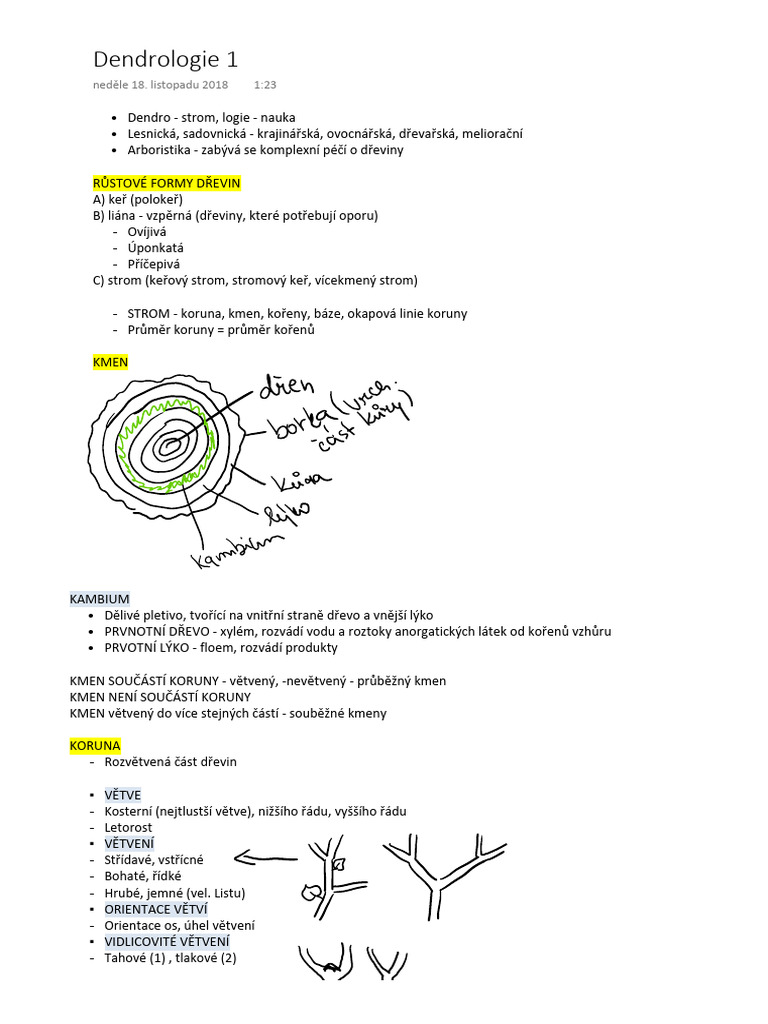 Dendrologie 1
neděle 18. listopadu 2018 1:23
• Dendro - strom, logie - nauka
• Lesnická, sadovnická - krajinářská, ovocnářská, dřevařská, meliorační
• Arboristika - zabývá se komplexní péčí o dřeviny
RŮSTOVÉ FORMY DŘEVIN
A) keř (polokeř)
B) liána - vzpěrná (dřeviny, které potřebují oporu)
- Ovíjivá
- Úponkatá
- Příčepivá
C) strom (keřový strom, stromový keř, vícekmený strom)
- STROM - koruna, kmen, kořeny, báze, okapová linie koruny
- Průměr koruny = průměr kořenů
KMEN
dřen
borka (vrch.
část kůry)
kůra
lýko
kambium
KAMBIUM
• Dělivé pletivo, tvořící na vnitřní straně dřevo a vnější lýko
• PRVNOTNÍ DŘEVO - xylém, rozvádí vodu a roztoky anorgatických látek od kořenů vzhůru
• PRVOTNÍ LÝKO - floem, rozvádí produkty
KMEN SOUČÁSTÍ KORUNY - větvený, -nevětvený - průběžný kmen
KMEN NENÍ SOUČÁSTÍ KORUNY
KMEN větvený do více stejných částí - souběžné kmeny
KORUNA
- Rozvětvená část dřevin
▪ VĚTVE
- Kosterní (nejtlustší větve), nižšího řádu, vyššího řádu
- Letorost
▪ VĚTVENÍ
- Střídavé, vstřícné
- Bohaté, řídké
- Hrubé, jemné (vel. Listu)
▪ ORIENTACE VĚTVÍ
- Orientace os, úhel větvení
▪ VIDLICOVITÉ VĚTVENÍ
- Tahové (1) , tlakové (2)